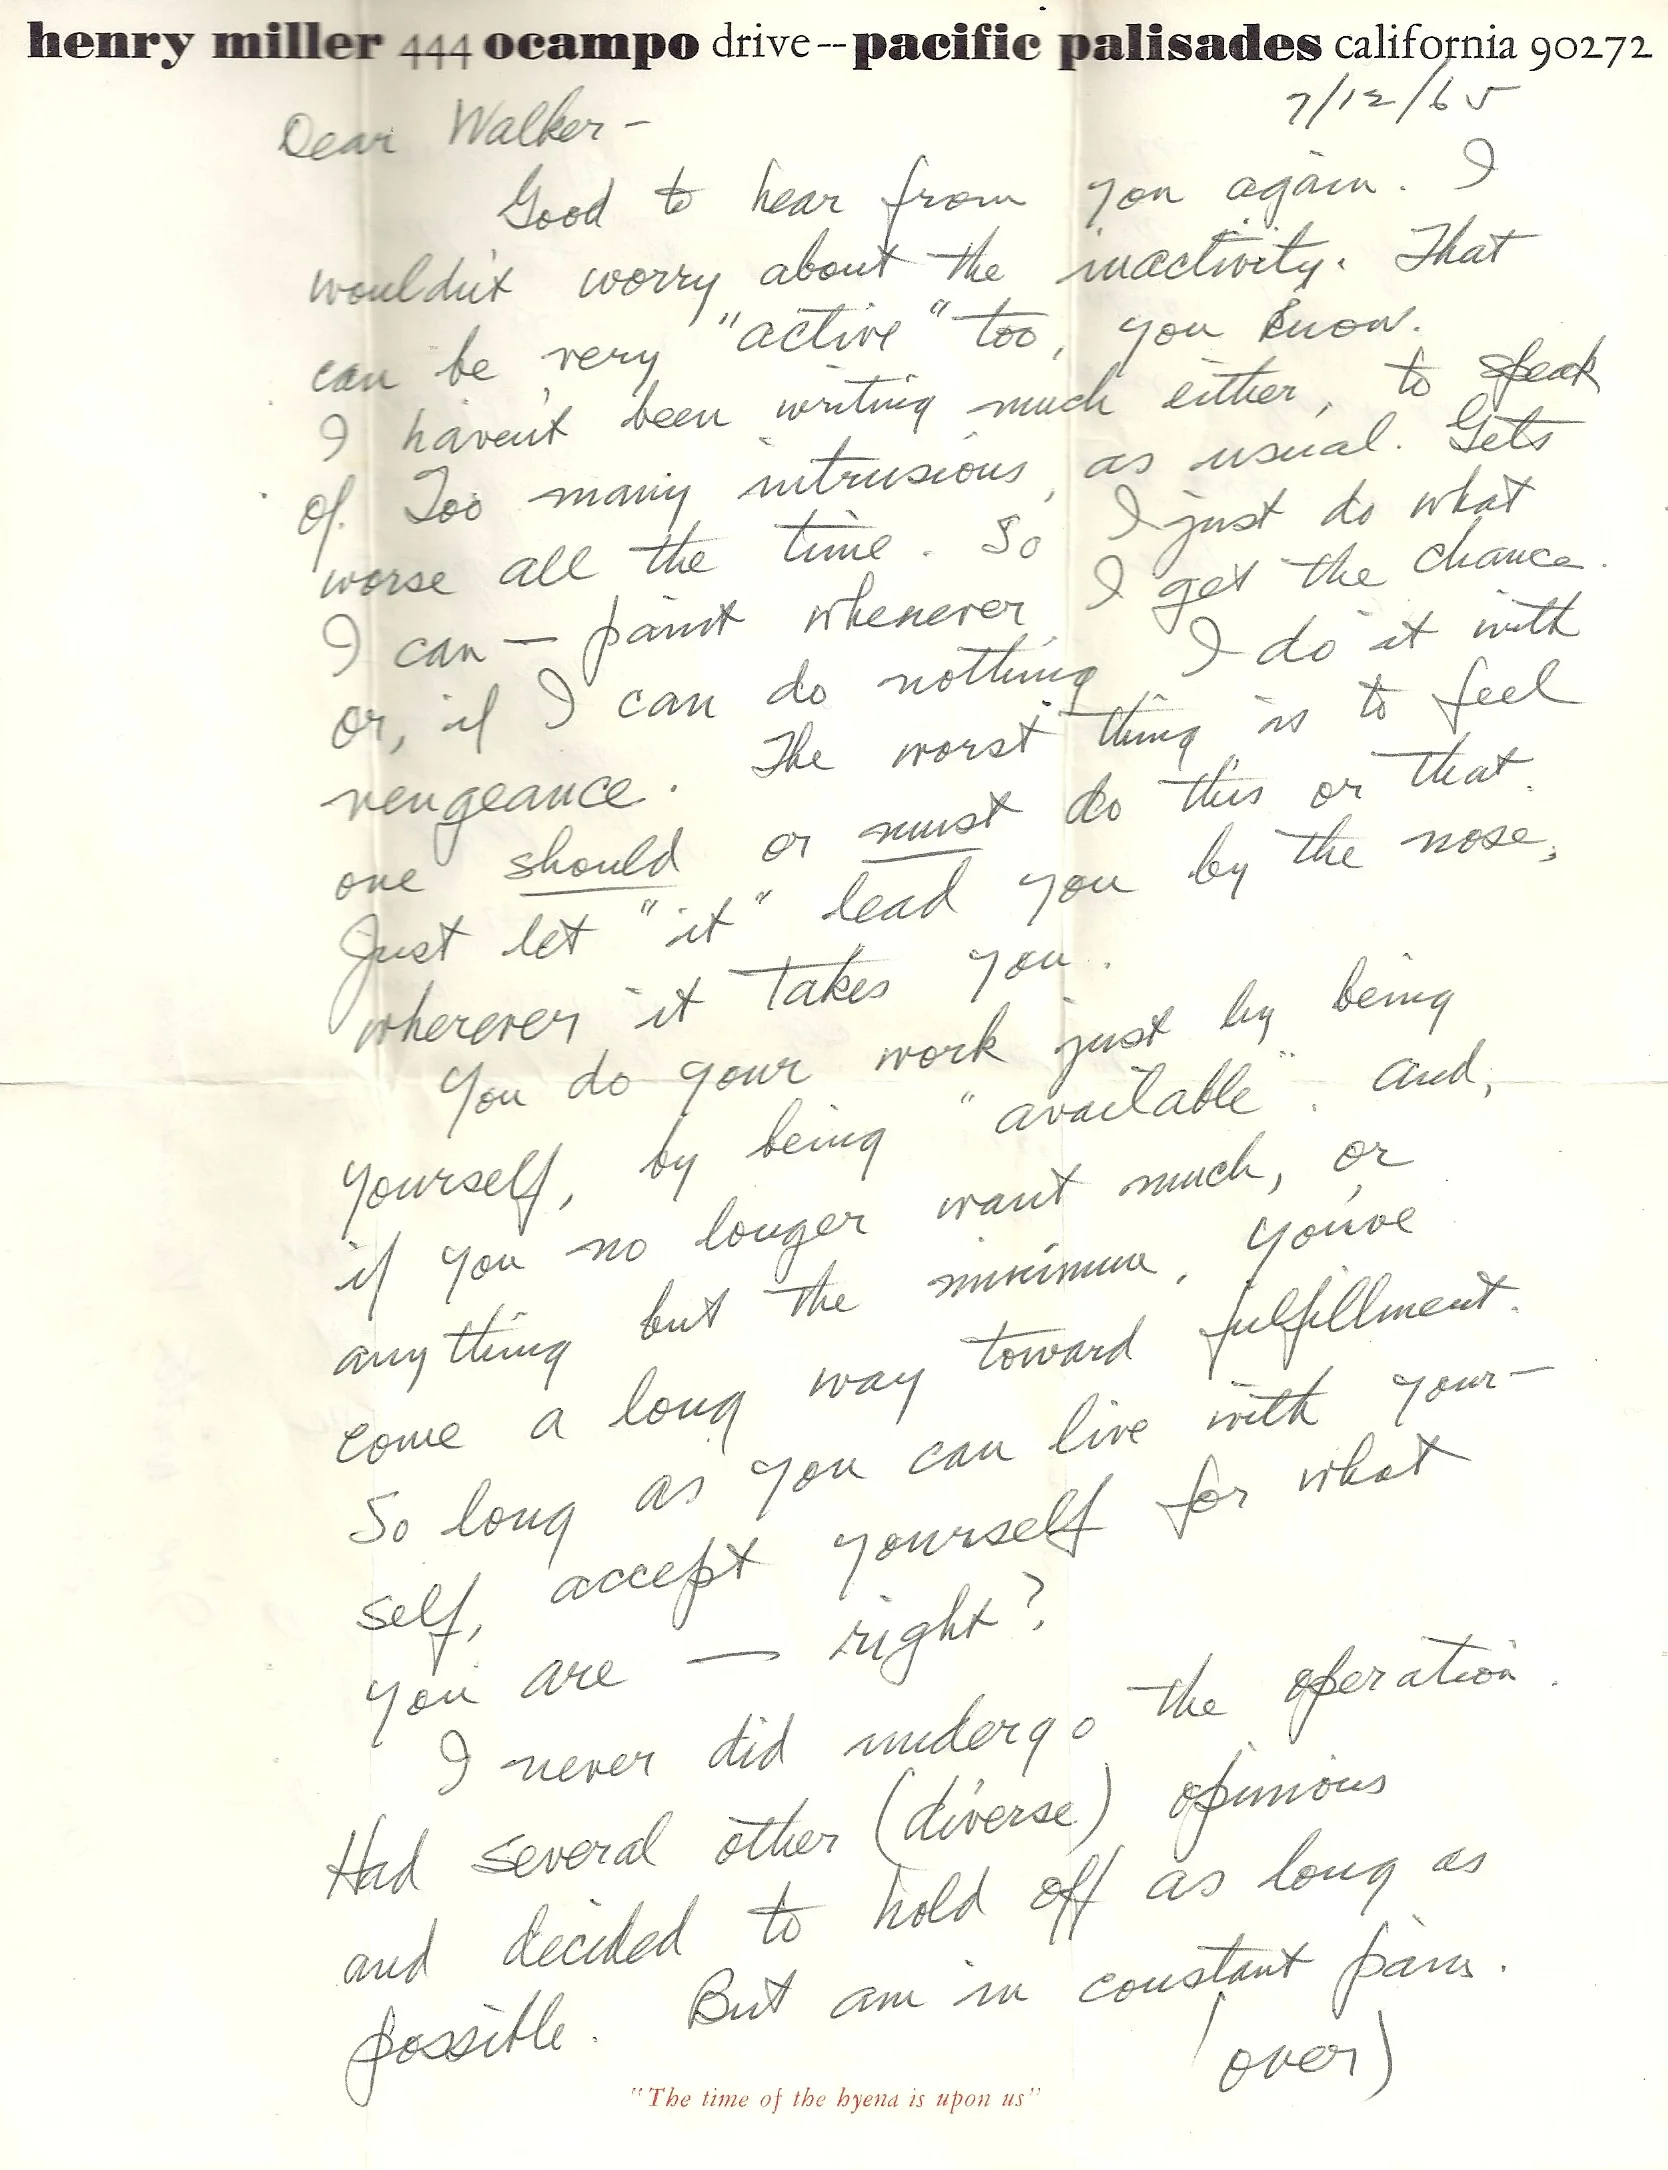 henry miller 444 ocampo drive -- pacific palisades california 90272
7/12/65
Dear Walker -
Good to hear from you again. I
wouldn't worry about the inactivity. That
can be very "active" too, you know.
I haven't been writing much either, to speak
of. Too many intrusions, as usual. Gets
worse all the time. So I just do what
I can — paint whenever I get the chance.
or, if I can do nothing I do it with
vengeance. The worst thing is to feel
one should or must do this or that.
Just let "it" lead you by the nose,
wherever it takes you.
You do your work just by being
yourself, by being "available". And,
if you no longer want much, or
anything but the minimum, you've
come a long way toward fulfillment.
So long as you can live with your-
self, accept yourself for what
you are — right?
I never did undergo the operation.
Had several other (diverse) opinions
and decided to hold off as long as
possible. But am in constant pain.
(over)
"The time of the hyena is upon us"